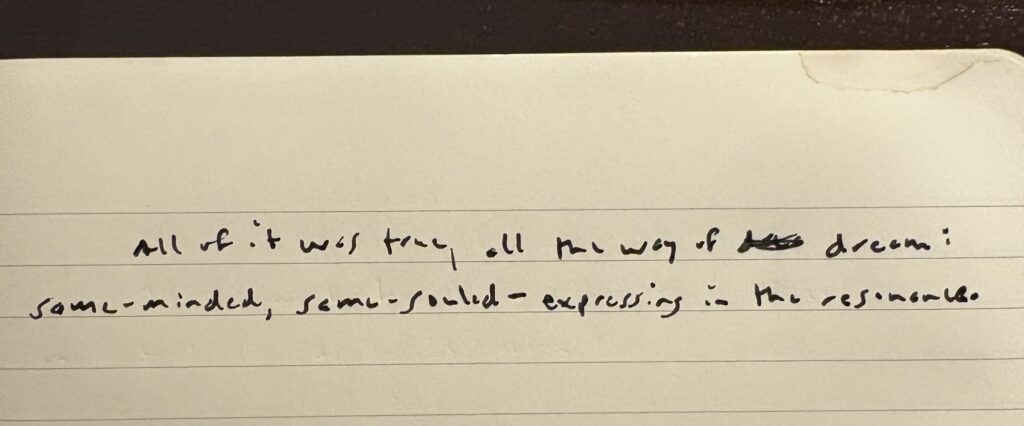 All of it was true, all the way of dream:
same-minded, same-souled - expressing in the resonance.